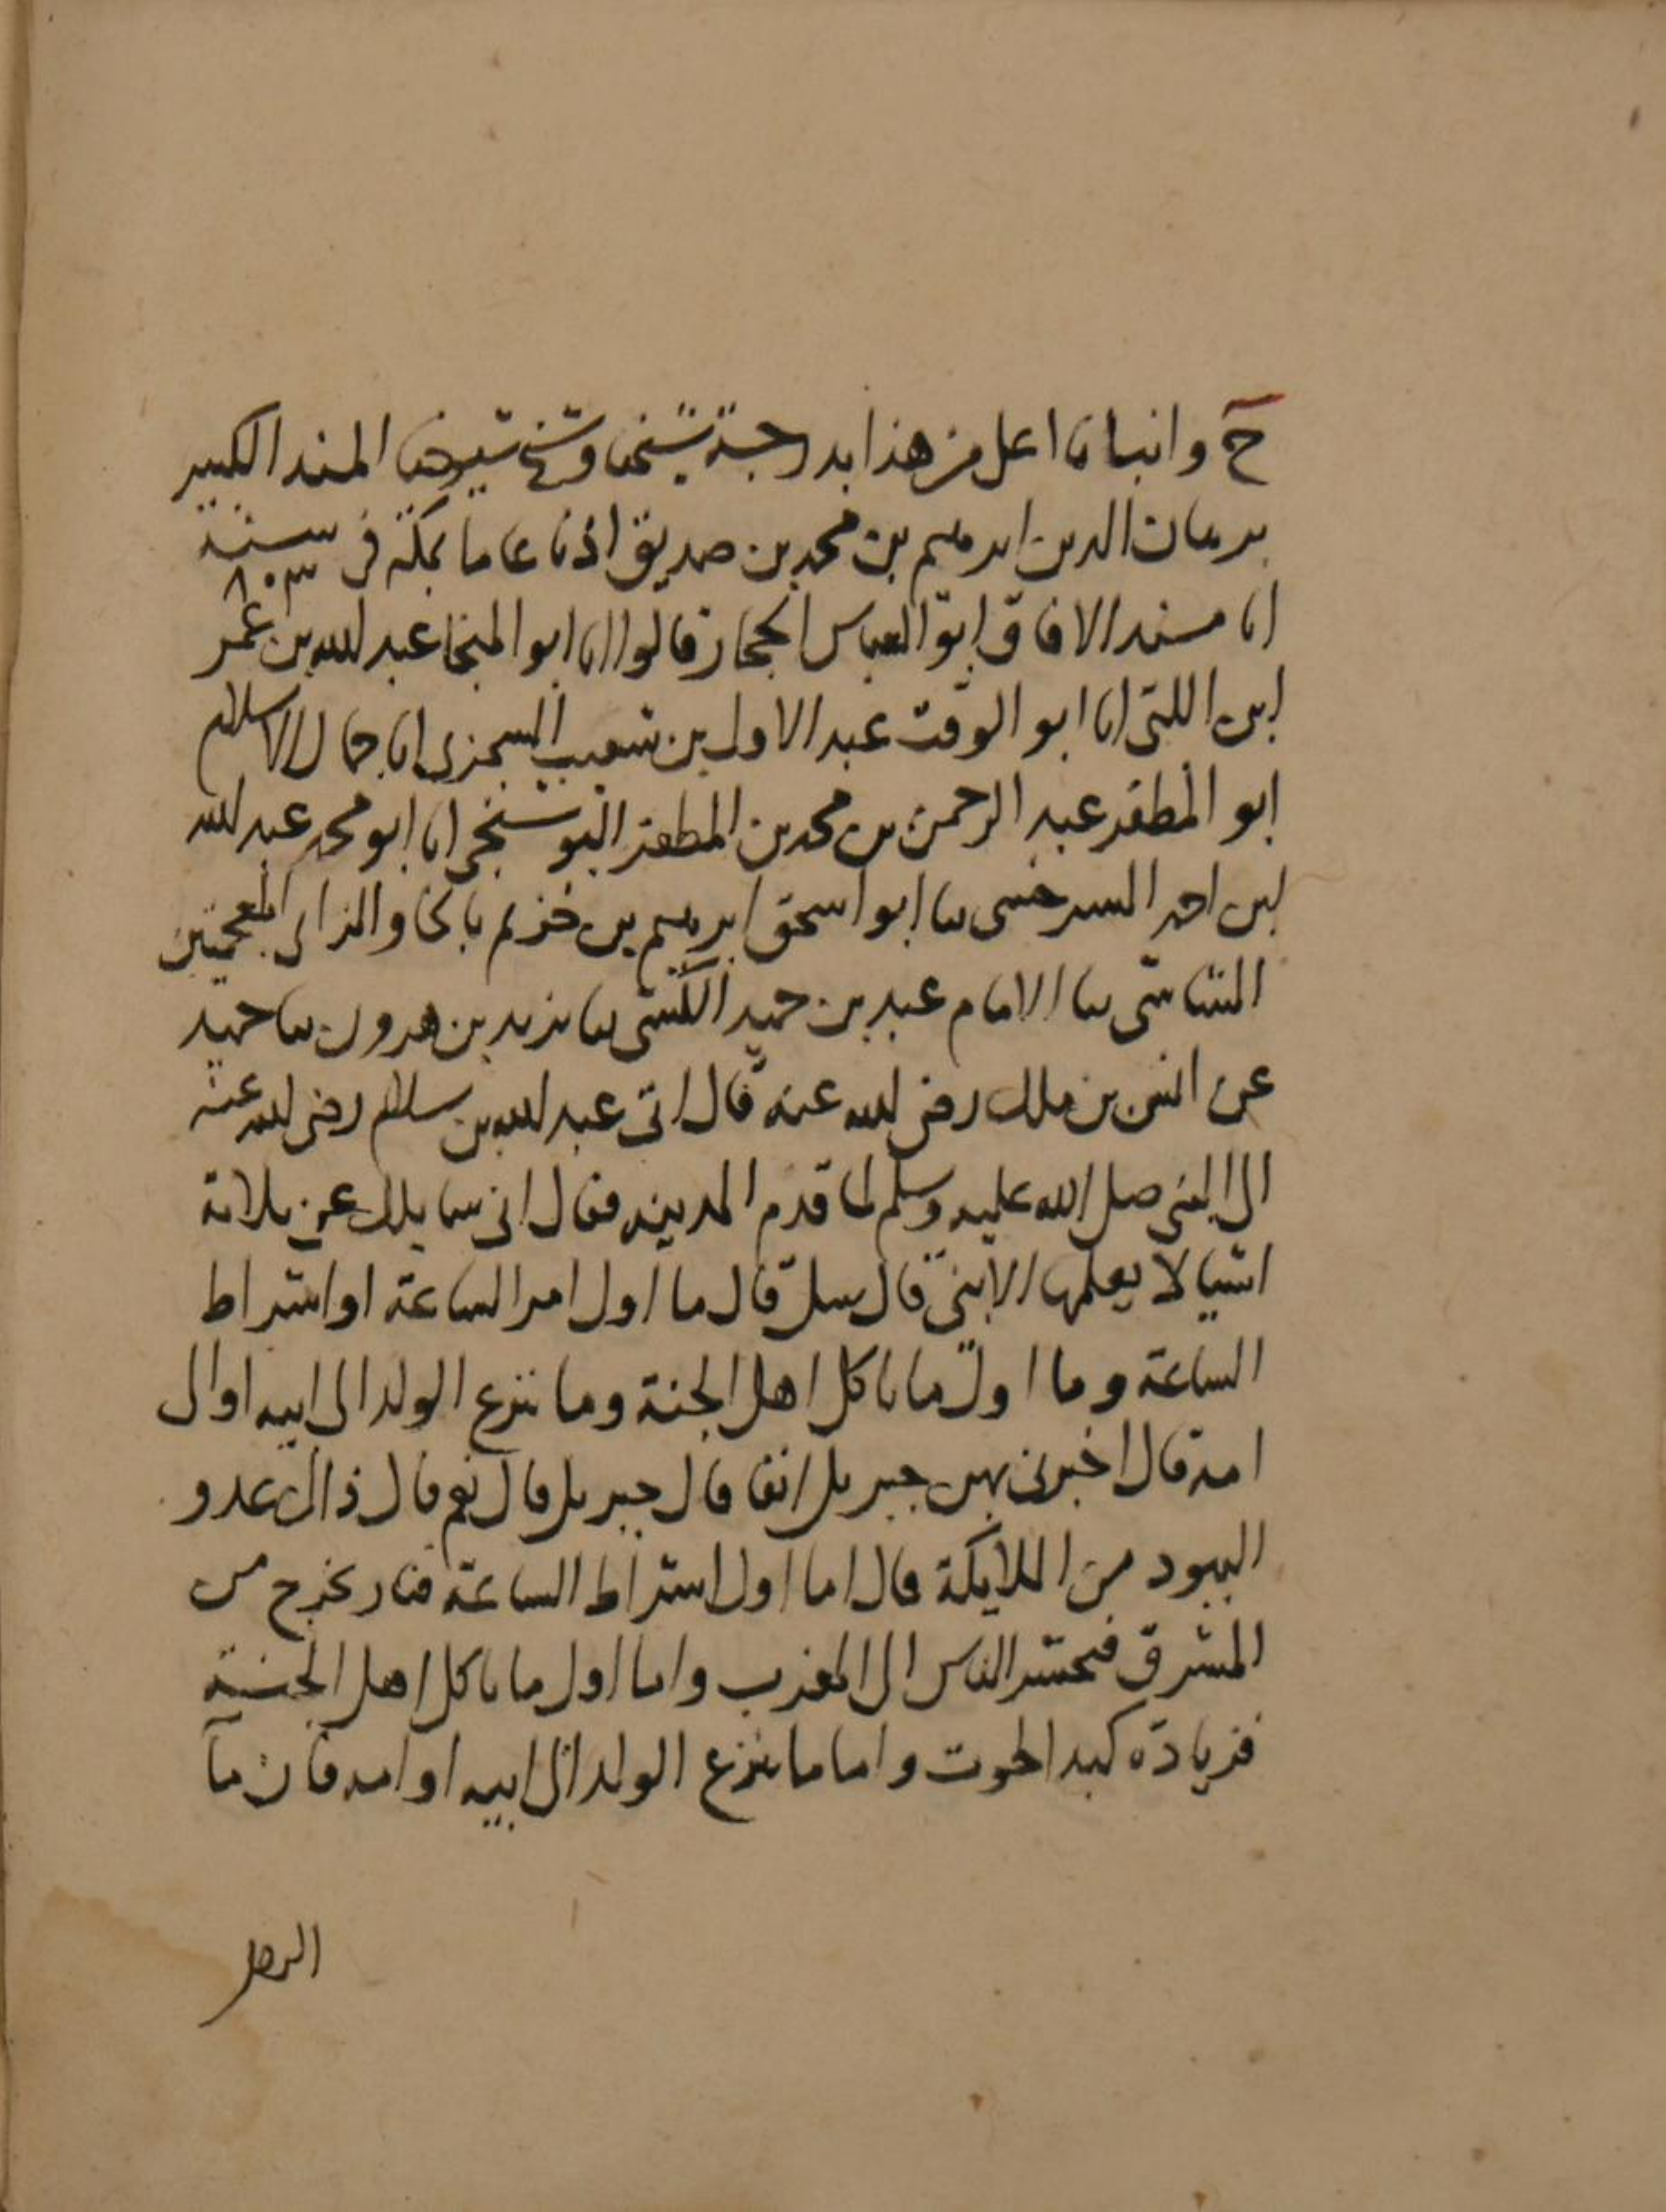 ح وانبانا اعلى من هذا بدرجة شيخنا وشيخ شيوخنا المسند الكبير
برهان الدين ابرهيم بن محمد بن صديق اذنا عاما بمكة في سنة ٨٠٣
انا مسند الافاق ابو العباس الحجار قالوا انا ابو المنجا عبد الله بن عمر
ابن اللتى انا ابو الوقت عبد الاول بن شعيب السجزى انا جمال الاسلام
ابو المظفر عبد الرحمن بن محمد بن المظفر البوشنجى انا ابو محمد عبد الله
ابن احمد السرخسى ثنا ابو اسحق ابرهيم بن خزيم بالخا والزاى المعجمتين
الشاشى ثنا الامام عبد بن حميد الكشى ثنا يزيد بن هرون ثنا حميد
عن انس بن ملك رضى الله عنه قال اتى عبد الله بن سلام رضى الله عنه
الى النبى صلى الله عليه وسلم لما قدم المدينه فقال انى سايلك عن ثلاثة
اشيا لا يعلمها الا نبى قال سل قال ما اول امر الساعة او اشراط
الساعة وما اول ما ياكل اهل الجنة وما ينزع الولد الى ابيه او الى
امه قال اخبرنى بهن جبريل انفا قال جبريل قال نعم قال ذاك عدو
اليهود من الملايكة قال اما اول اشراط الساعة فنار تخرج من
المشرق فتحشر الناس الى المغرب واما اول ما ياكل اهل الجنة
فزيادة كبد الحوت واما ما ينزع الولد الى ابيه او امه فان ما
الرجل